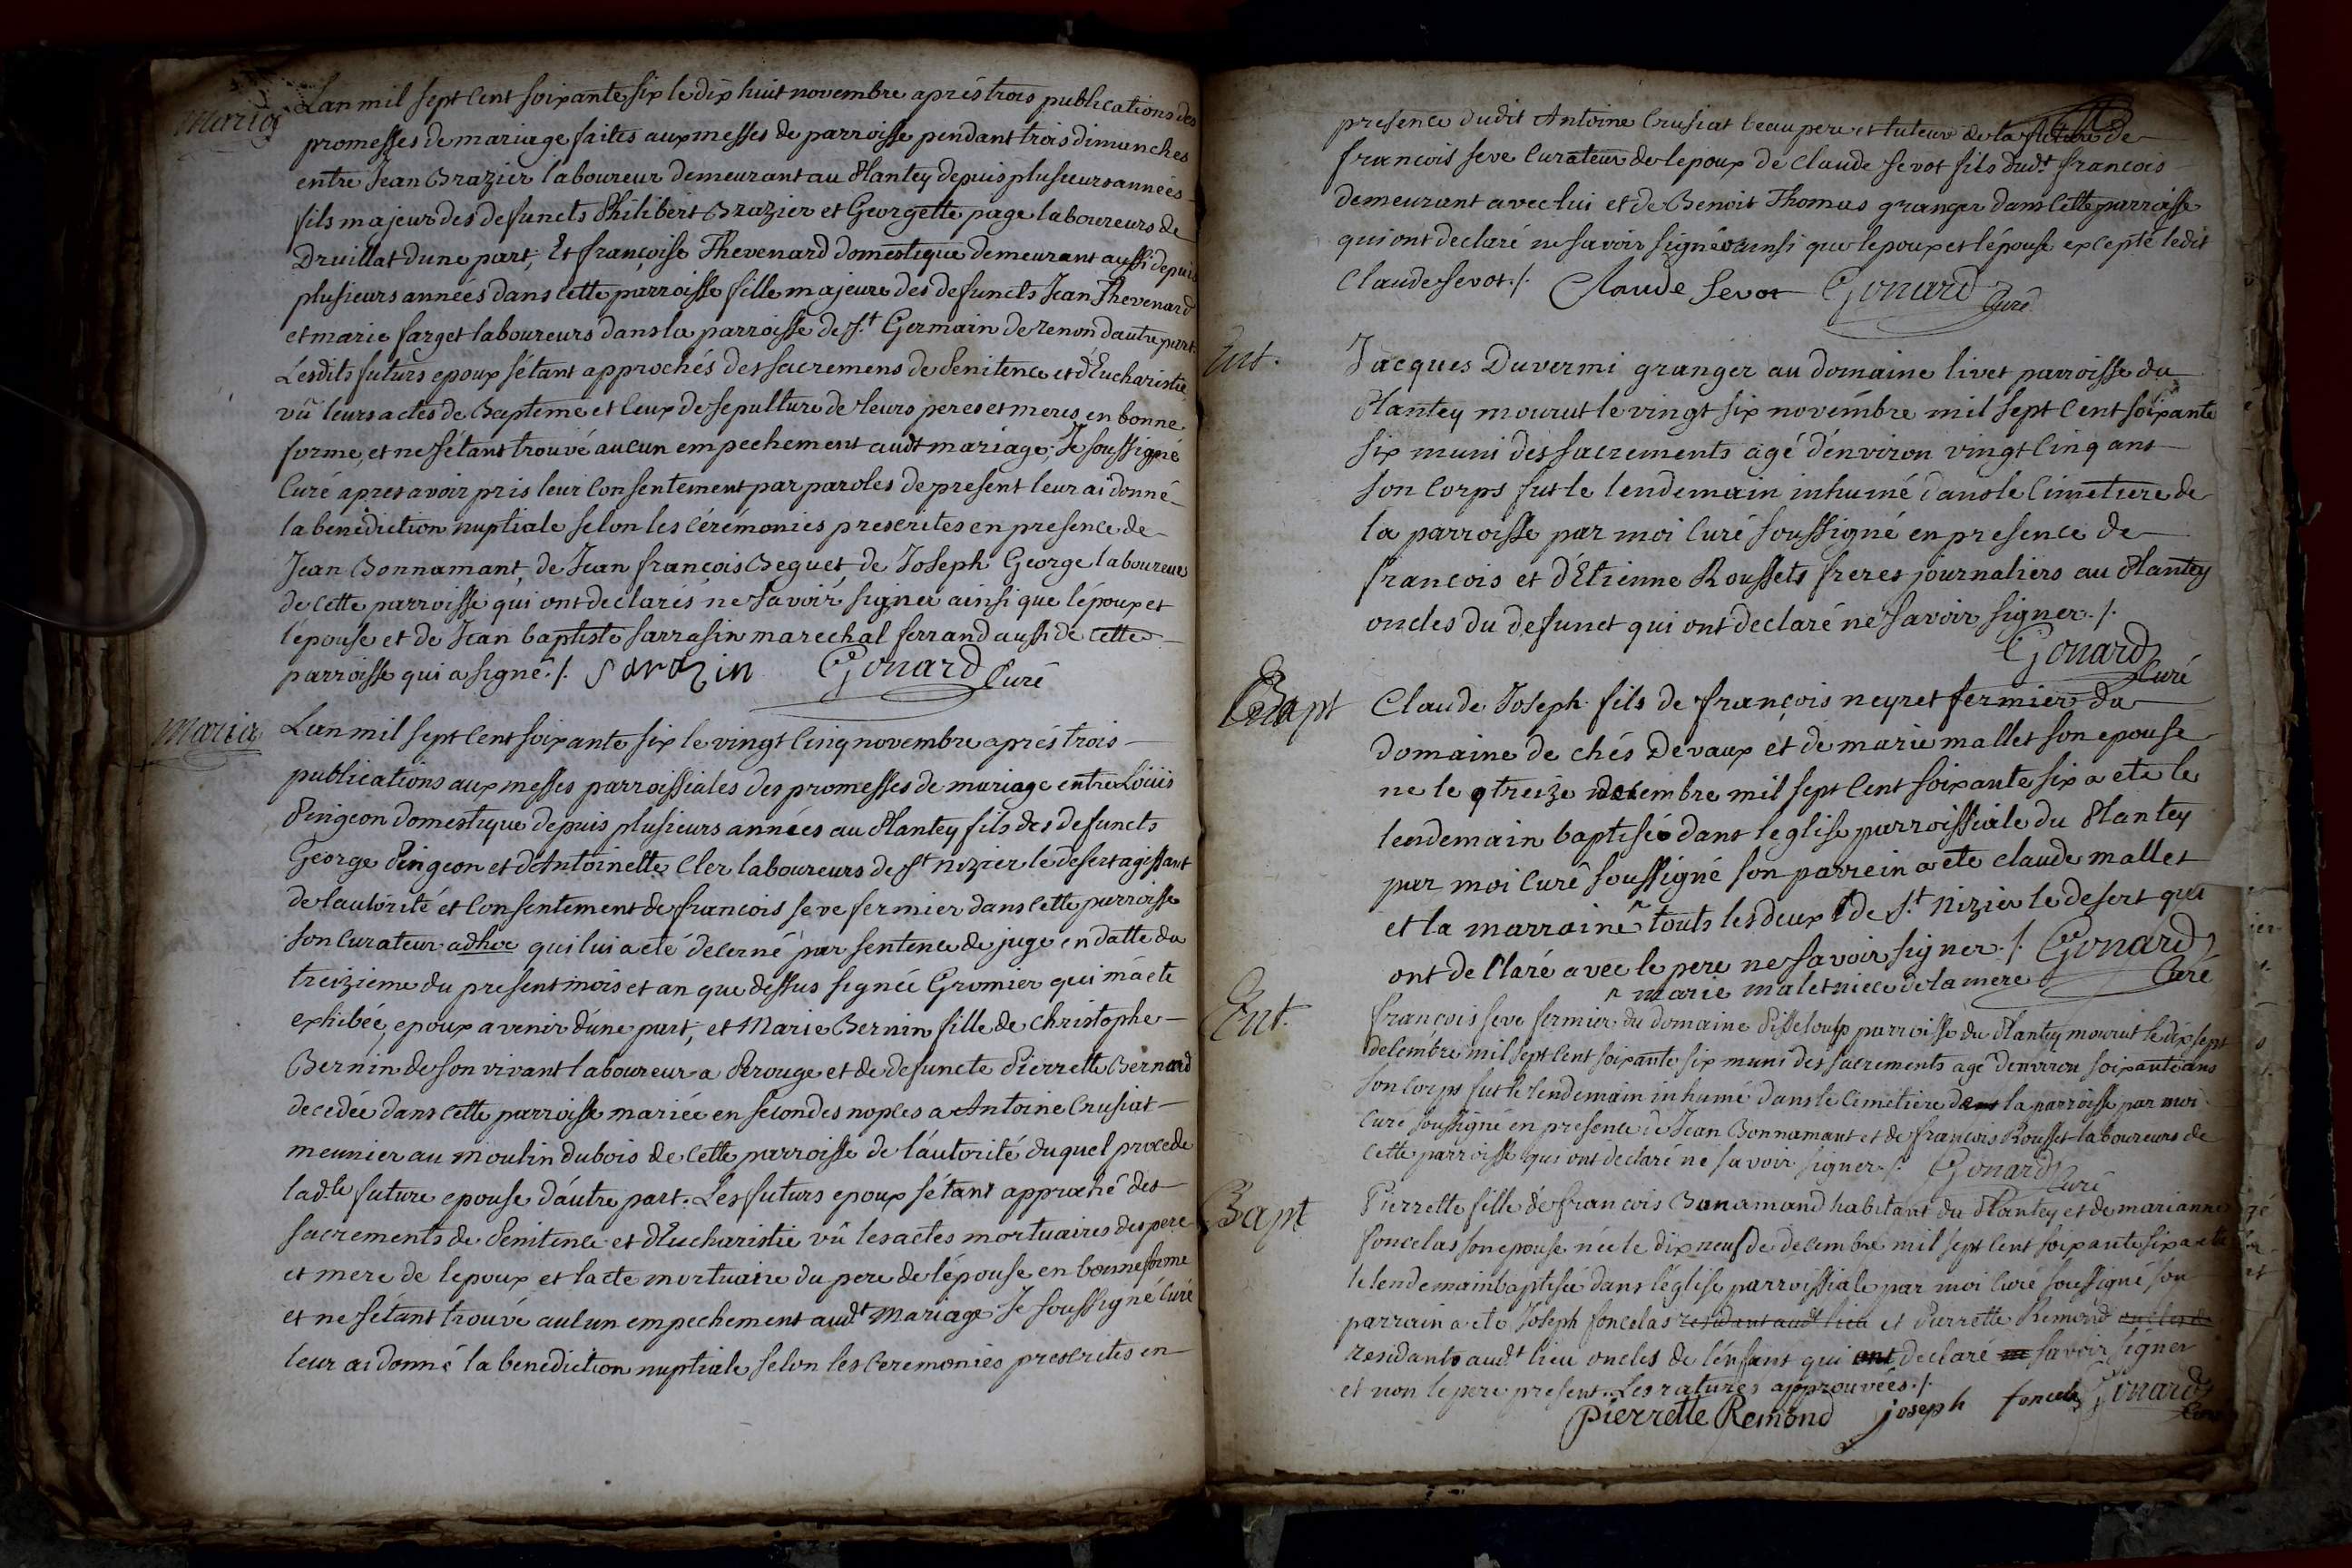 Mariag
Lan mil sept cent soixante six le dix huit novembre aprés trois publications des
promesses de mariage faites aux messes de parroisse pendant trois dimanches
entre Jean Brazier laboureur demeurant au Plantey depuis plusieurs années
fils majeur des defuncts Philibert Brazier et Georgette page laboureurs de
Druillat dune part, Et françoise Thevenard domestique demeurant aussi depuis
plusieurs années dans cette parroisse fille majeure des defuncts Jean Thevenard
et marie farget laboureurs dans la parroisse de St. Germain de renon dautre part.
Lesdits futurs epoux s'étant approchés des sacremens de Penitence et d'Eucharistie
vû leurs actes de Bapteme et ceux de sepulture de leurs peres et meres en bonne
forme, et ne s'étant trouvé aucun empechement audt mariage; Je soussigné
Curé apres avoir pris leur consentement par paroles de present leur ai donné
la benediction nuptiale selon les cérémonies prescrites en presence de
Jean Bonnamant, de Jean françois Beguet, de Joseph George laboureurs
de cette parroisse qui ont declarés ne savoir signer ainsi que l'époux et
l'épouse et de Jean baptiste sarrasin marechal ferrand aussi de cette
parroisse qui a signé ./. Sarazin Gonard Curé
Maria
Lan mil sept cent soixante six le vingt cinq novembre aprés trois
publications aux messes parroissiales des promesses de mariage entre Loüis
Pingeon domestique depuis plusieurs années au Plantey fils des defuncts
George Pingeon et d'Antoinette Cler laboureurs de St nizier le desert agissant
de lautorité et consentement de francois seve fermier dans cette parroisse
son curateur adhoc qui lui a eté decerné par sentence de juge en datte du
treizieme du present mois et an que dessus signée Gromier qui m'a ete
exhibée, epoux avenir d'une part, et Marie Bernin fille de christophe
Bernin de son vivant laboureur a Perouge et de defuncte Pierrette Bernard
decedée dans cette parroisse mariée en secondes nopces a Antoine Crusiat
meunier au moulin dubois de cette parroisse de l'autorité duquel procede
lad.te future epouse d'autre part. Les futurs epoux s'étant approché des
sacrements de Penitence et d'Eucharistie vû les actes mortuaires des pere
et mere de lepoux et lacte mortuaire du pere de l'épouse en bonne forme
et ne s'étant trouvé aucun empechement audt mariage Je soussigné Curé
leur ai donné la benediction nuptiale selon les ceremonies prescrites en
presence dudit Antoine Crusiat beau pere et tuteur de la future de
francois seve curateur de lepoux de Claude sevot fils dudt francois
demeurant avec lui et de Benoit Thomas granger dans cette parroisse
qui ont declaré ne savoir signér ainsi que lepoux et l'épouse excepté ledit
Claude sevot ./. Claude Sevot Gonard Curé
Ent.
Jacques Duvermi granger au domaine livet parroisse du
Plantey mourut le vingt six novembre mil sept cent soixante
six muni des sacrements agé d'environ vingt cinq ans
son corps fut le lendemain inhumé dans le cimetiere de
la parroisse par moi curé soussigné en presence de
francois et d'Etienne Roussets freres journaliers au Plantey
oncles du defunct qui ont declaré ne savoir signer ./.
Gonard Curé
Bapt
Claude Joseph fils de françois neyret fermier du
domaine de chés Devaux et de marie mallet son epouse
ne le treize decembre mil sept cent soixante six a ete le
lendemain baptisé dans leglise parroissiale du Plantey
par moi curé soussigné son parrein a ete claude mallet
et la marraine ^ touts les deux de St. nizier le desert qui
ont declaré avec le pere ne savoir signer ./. Gonard Curé
^ marie malet niece de la mere
Ent.
francois seve fermier du domaine Pisseloup parroisse du Plantey mourut le dix sept
decembre mil sept cent soixante six muni des sacrements agé denviron soixante ans
son corps fut le lendemain inhumé dans le cimetiere de la parroisse par moi
curé soussigné en presence de Jean Bonnamant et de francois Rousset laboureurs de
cette parroisse qui ont declaré ne savoir signer ./. Gonard Curé
Bapt
Pierrette fille de francois Bonamand habitant du Plantey et de marianne
foncelas son epouse née le dix neuf de decembre mil sept cent soixante six a ete
le lendemain baptisée dans l'église parroissiale par moi curé soussigné son
parrain a ete Joseph foncelas residant audt lieu et Pierrette Remond oncles de
residants audt lieu oncles de l'enfant qui ont declaré ne savoir signer
et non le pere present. Les ratures approuvées ./.
Pierrette Remond joseph foncelas Gonard Curé